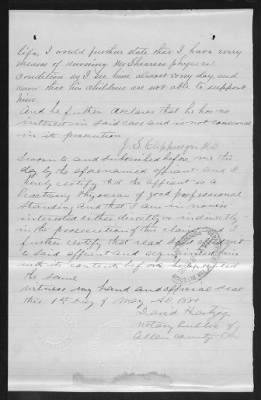 life. I would further state that I have every
means of knowing Mr physical
condition as I see him almost every day and
know that his children are not able to support
him.
And he further declares that he has no
interest in said case and is not concerned
in its prosecution
J. S. M.D.
Sworn to and subscribed before me this
day by the aforenamed affiant and I
hereby certify that the affiant is a
practicing Physician of good professional
Standing and that I am in no wise
interested either directly or indirectly
in the prosecution of this claim and I
further certify that read affidavit
to said affiant and acquainted him
with its contents before he executed
the same
witness my hand and official seal
this 1st Day of May AD
David
Notary public of
Allen County